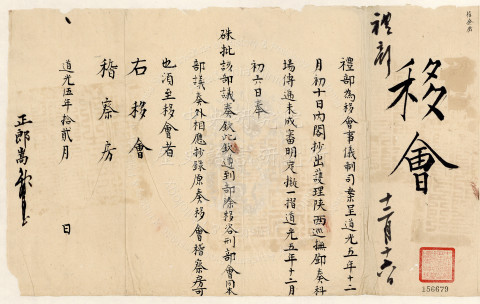 禮部
移會
十二月十六日
禮部為移會事儀制司案呈道光五年十二
月初十日內閣抄出護理陝西巡撫鄧奏科
場傳遞未成審明定擬一摺道光五年十二月
初六日奉
硃批該部議奏欽此欽遵到部除移咨刑部會同本
部議奏外相應抄錄原奏移會稽察房可
也須至移會者
右移會
稽察房
道光伍年拾貳月 日
正郎嵩
156679